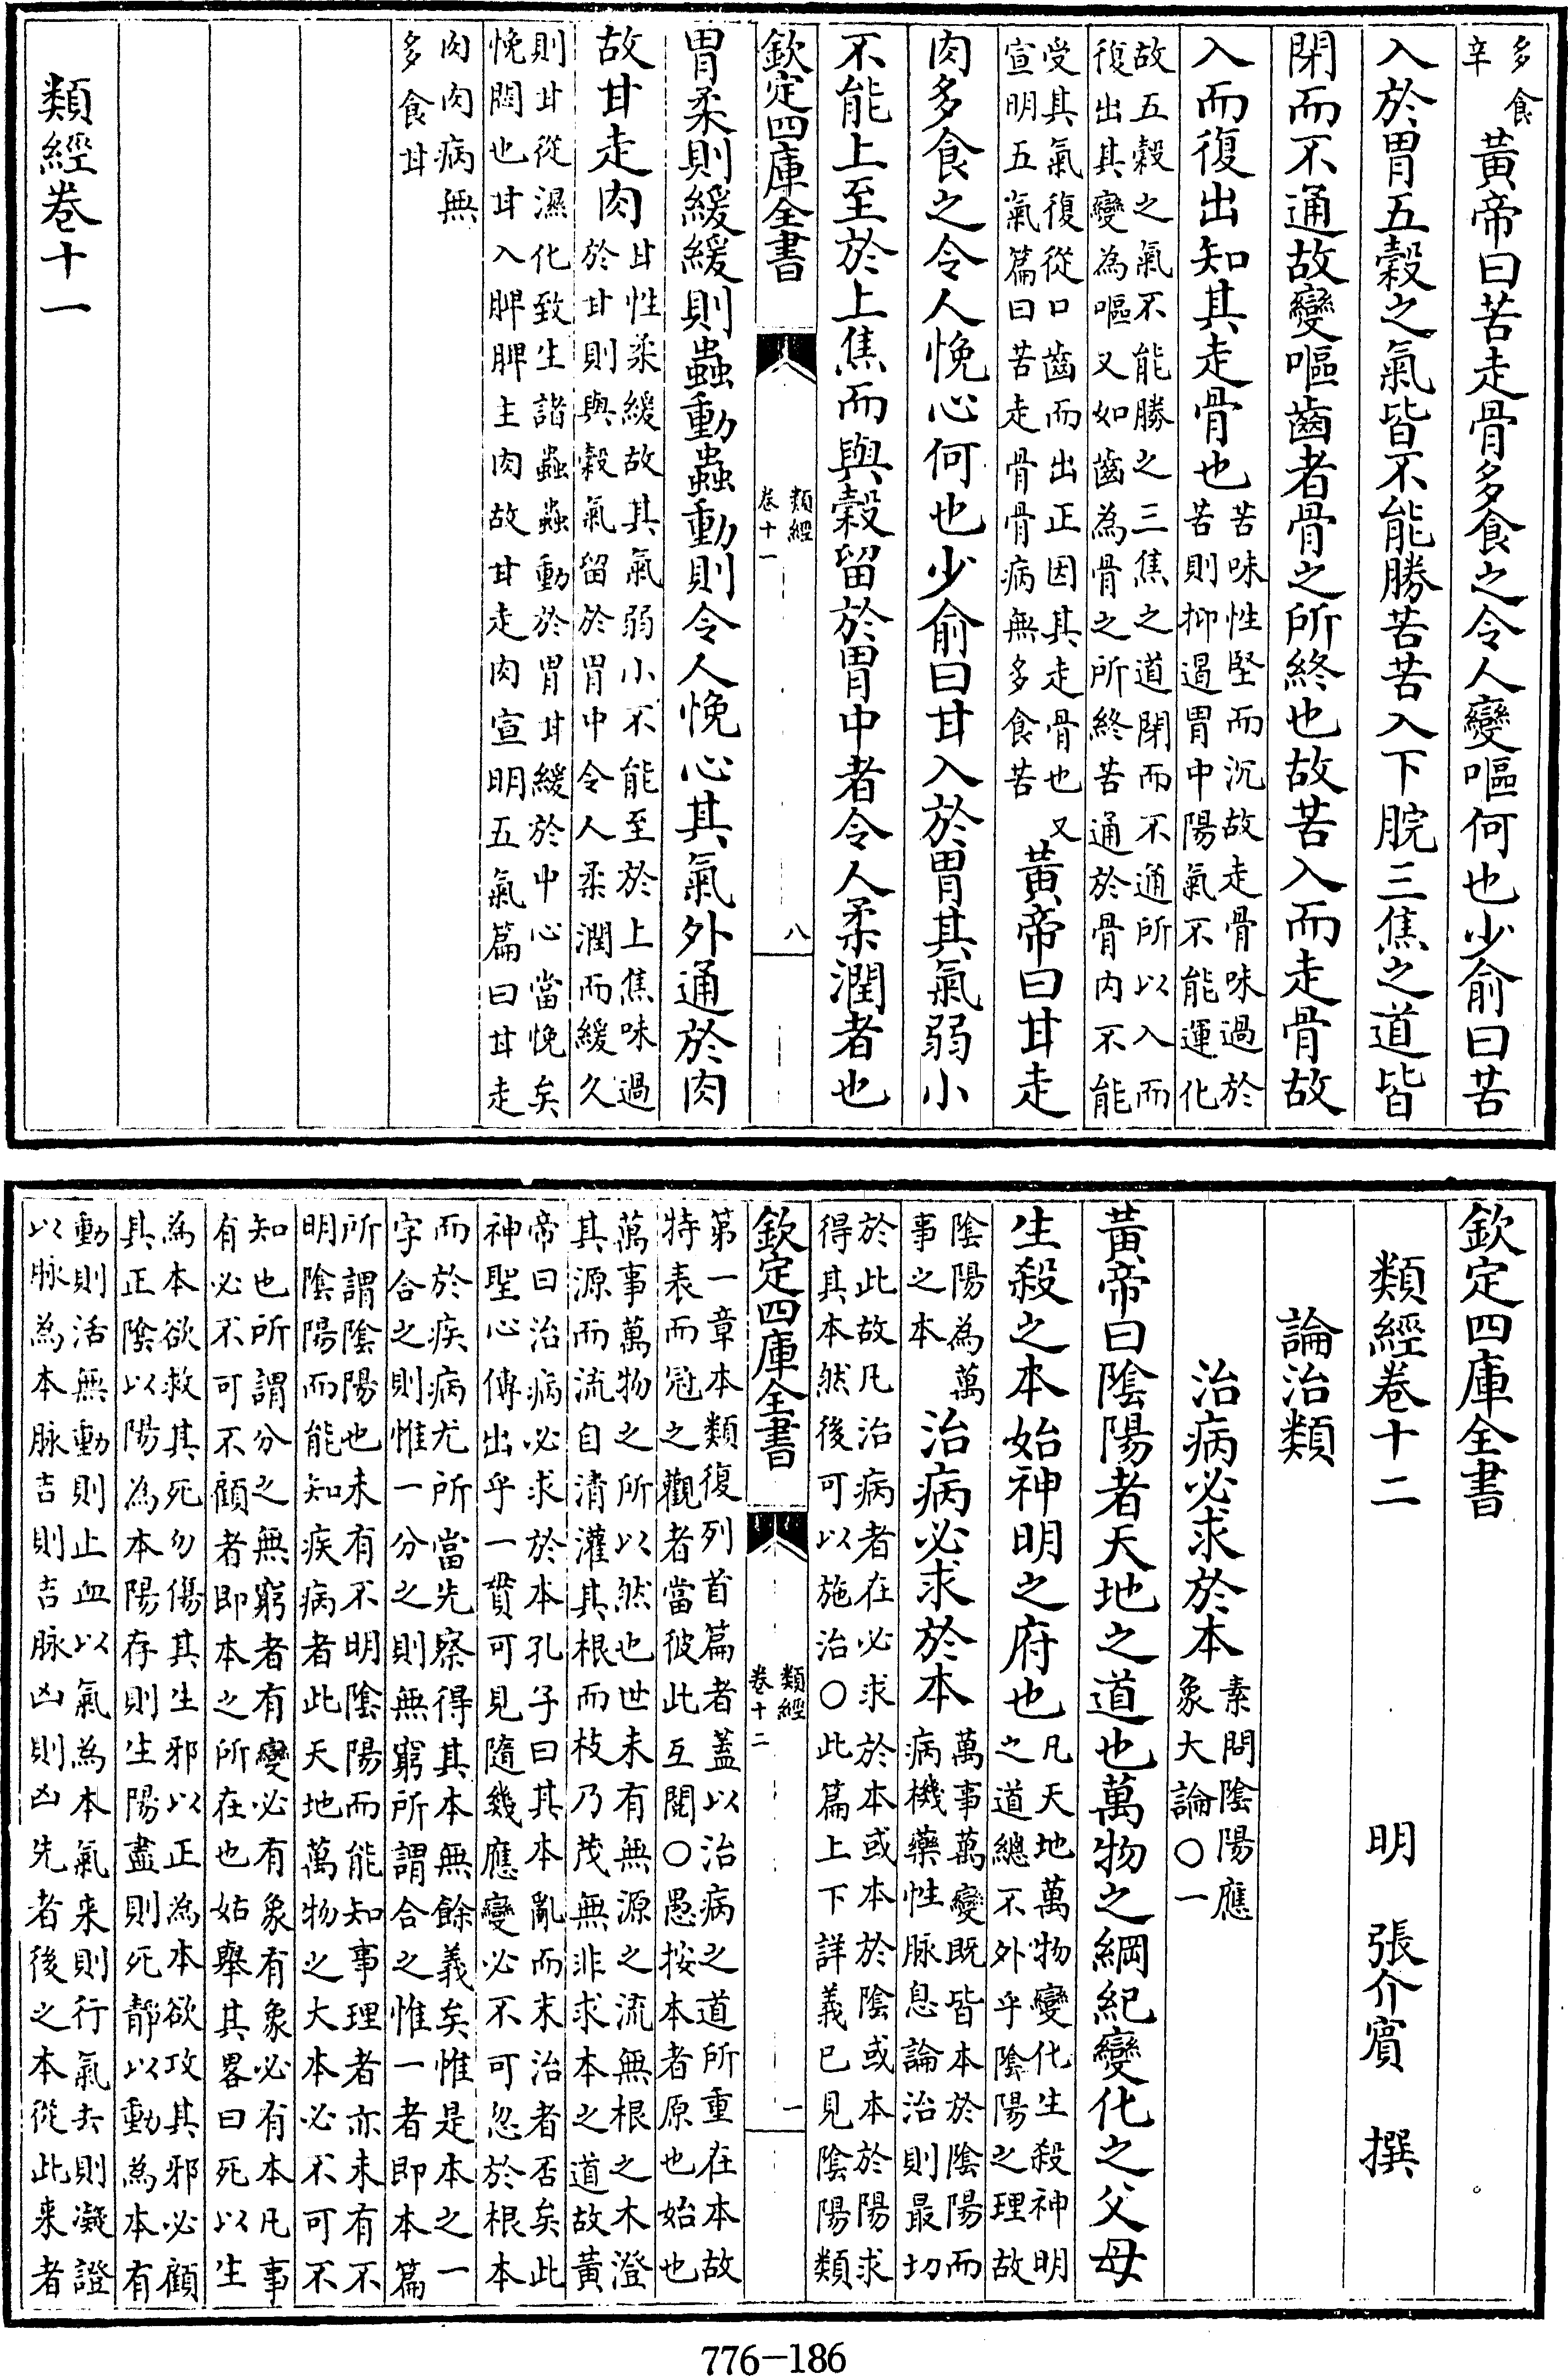 多食
辛
黃帝曰苦走骨多食之令人變嘔何也少俞曰苦
入於胃五穀之氣皆不能勝苦苦入下脘三焦之道皆
閉而不通故變嘔齒者骨之所終也故苦入而走骨故
入而復出知其走骨也
苦味性堅而沉故走骨味過於
苦則抑遏胃中陽氣不能運化
故五穀之氣不能勝之三焦之道閉而不通所以入而
復出其變為嘔又如齒為骨之所終苦通於骨內不能
受其氣復從口齒而出正因其走骨也又
宣明五氣篇曰苦走骨骨病無多食苦
黃帝曰甘走
肉多食之令人悗心何也少俞曰甘入於胃其氣弱小
不能上至於上焦而與穀留於胃中者令人柔潤者也
欽定四庫全書
類經
卷十一
八
胃柔則緩緩則蟲動蟲動則令人悗心其氣外通於肉
故甘走肉
甘性柔緩故其氣弱小不能至於上焦味過
於甘則與穀氣留於胃中令人柔潤而緩久
則甘從濕化致生諸蟲蟲動於胃甘緩於中心當悗矣
悗悶也甘入脾脾主肉故甘走肉宣明五氣篇曰甘走
肉肉病無
多食甘
類經卷十一
欽定四庫全書
類經卷十二
明 張介賓 撰
論治類
治病必求於本
素問陰陽應
象大論○一
黃帝曰陰陽者天地之道也萬物之綱紀變化之父母
生殺之本始神明之府也
凡天地萬物變化生殺神明
之道總不外乎陰陽之理故
陰陽為萬
事之本
治病必求於本
萬事萬變既皆本於陰陽而
病機藥性脉息論治則最切
於此故凡治病者在必求於本或本於陰或本於陽求
得其本然後可以施治○此篇上下詳義已見陰陽類
欽定四庫全書
類經
卷十二
一
第一章本類復列首篇者蓋以治病之道所重在本故
特表而冠之觀者當彼此互閱○愚按本者原也始也
萬事萬物之所以然也世未有無源之流無根之木澄
其源而流自清灌其根而枝乃茂無非求本之道故黃
帝曰治病必求於本孔子曰其本亂而末治者否矣此
神聖心傳出乎一貫可見隨幾應變必不可忽於根本
而於疾病尤所當先察得其本無餘義矣惟是本之一
字合之則惟一分之則無窮所謂合之惟一者即本篇
所謂陰陽也未有不明陰陽而能知事理者亦未有不
明陰陽而能知疾病者此天地萬物之大本必不可不
知也所謂分之無窮者有變必有象有象必有本凡事
有必不可不顧者即本之所在也姑舉其畧曰死以生
為本欲救其死勿傷其生邪以正為本欲攻其邪必顧
其正陰以陽為本陽存則生陽盡則死靜以動為本有
動則活無動則止血以氣為本氣来則行氣去則凝證
以脉為本脉吉則吉脉凶則凶先者後之本從此来者
776-186